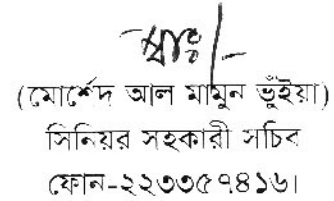 স্বাঃ/-
(মোর্শেদ আল মামুন ভূঁইয়া)
সিনিয়র সহকারী সচিব
ফোন-২২৩৩৫৭৪১৬।